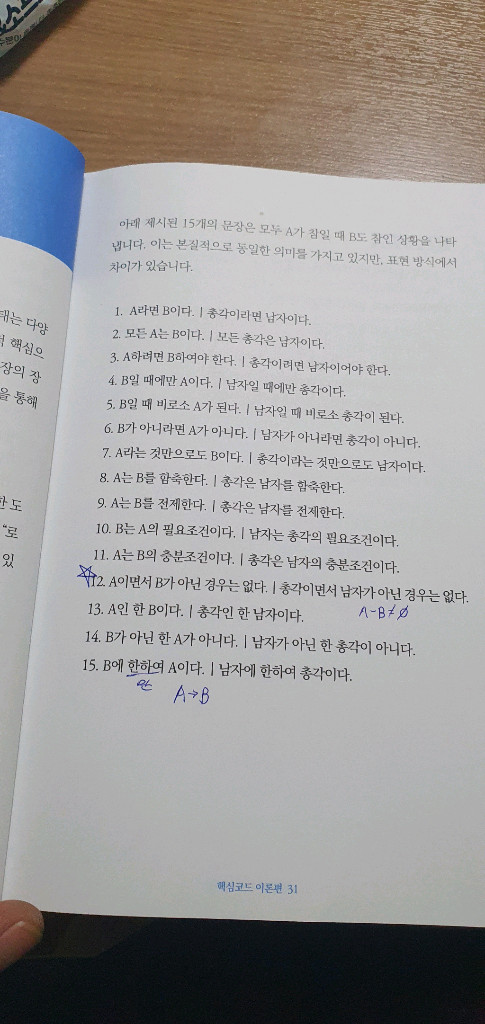 태는 다양
핵심으
장의 장
을 통해
한 도
“로
있
아래 제시된 15개의 문장은 모두 A가 참일 때 B도 참인 상황을 나타
냅니다. 이는 본질적으로 동일한 의미를 가지고 있지만, 표현 방식에서
차이가 있습니다.
1. A라면 B이다. | 총각이라면 남자이다.
2. 모든 A는 B이다. | 모든 총각은 남자이다.
3. A하려면 B하여야 한다. | 총각이려면 남자이어야 한다.
4. B일 때에만 A이다. | 남자일 때에만 총각이다.
5. B일 때 비로소 A가 된다. | 남자일 때 비로소 총각이 된다.
6. B가 아니라면 A가 아니다. | 남자가 아니라면 총각이 아니다.
7. A라는 것만으로도 B이다. | 총각이라는 것만으로도 남자이다.
8. A는 B를 함축한다. | 총각은 남자를 함축한다.
9. A는 B를 전제한다. | 총각은 남자를 전제한다.
10. B는 A의 필요조건이다. | 남자는 총각의 필요조건이다.
11. A는 B의 충분조건이다. | 총각은 남자의 충분조건이다.
12. A이면서 B가 아닌 경우는 없다. | 총각이면서 남자가 아닌 경우는 없다.
A-B≠∅
13. A인 한 B이다. | 총각인 한 남자이다.
14. B가 아닌 한 A가 아니다. | 남자가 아닌 한 총각이 아니다.
15. B에 한하여 A이다. | 남자에 한하여 총각이다.
만 A→B
핵심코드 이론편 31